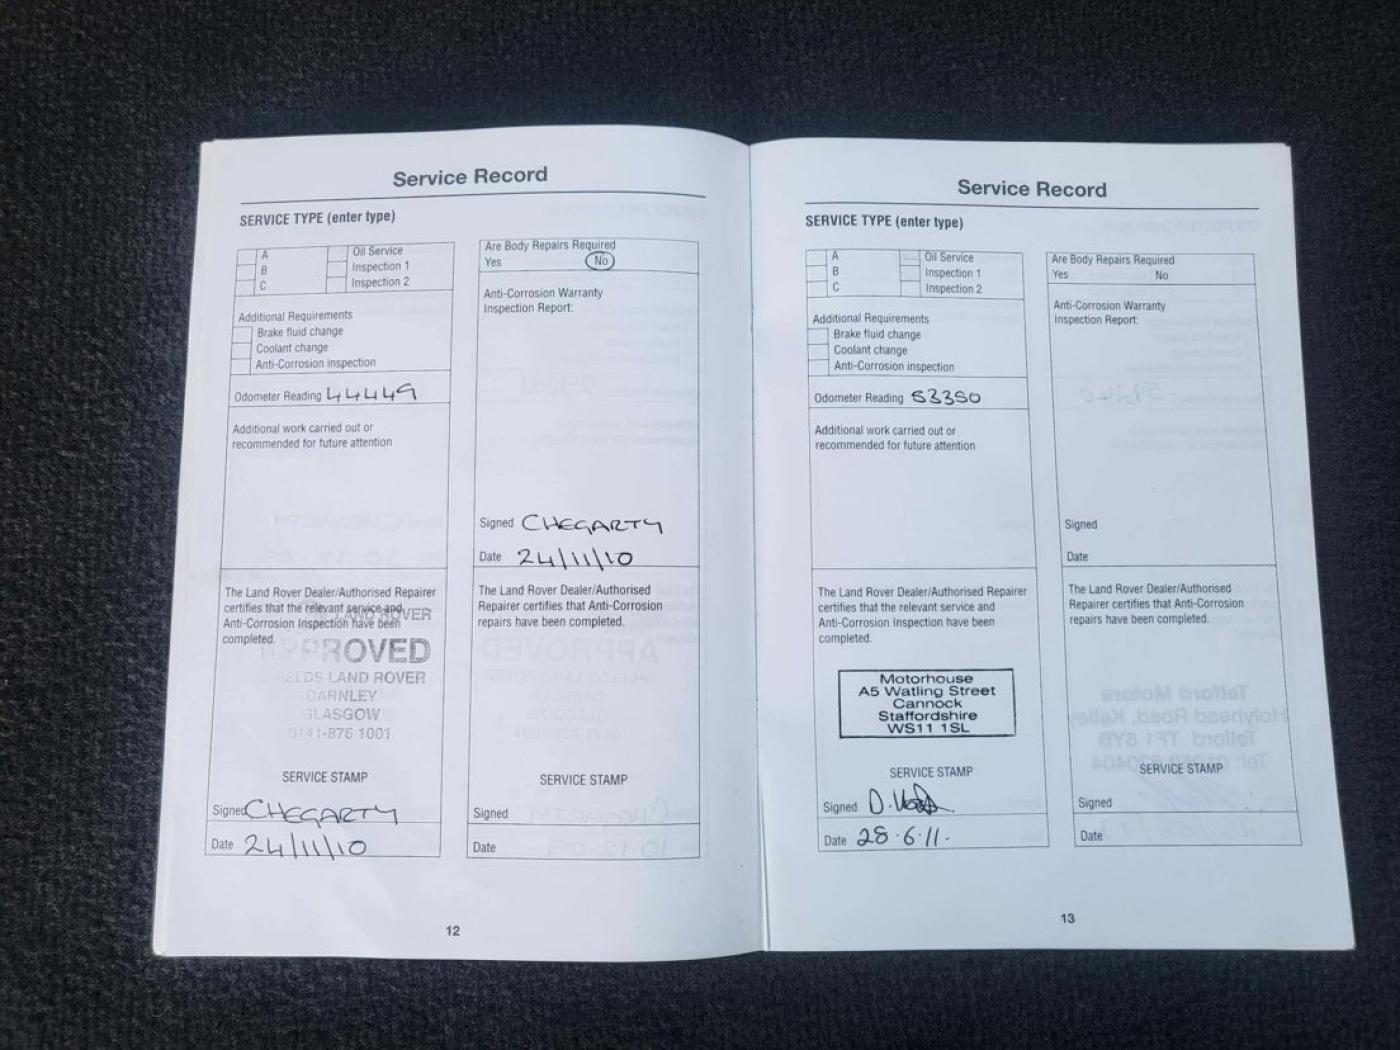 Service Record
SERVICE TYPE (enter type)
A
B
C
Oil Service
Inspection 1
Inspection 2
Additional Requirements
Brake fluid change
Coolant change
Anti-Corrosion inspection
Odometer Reading 44449
Additional work carried out or
recommended for future attention
The Land Rover Dealer/Authorised Repairer
certifies that the relevant service and
Anti-Corrosion Inspection have been
completed.
LAND ROVER
APPROVED
SHIELDS LAND ROVER
DARNLEY
GLASGOW
0141-876 1001
SERVICE STAMP
Signed CHEGARTY
Date 24/11/10
Are Body Repairs Required
Yes No
Anti-Corrosion Warranty
Inspection Report:
Signed CHEGARTY
Date 24/11/10
The Land Rover Dealer/Authorised
Repairer certifies that Anti-Corrosion
repairs have been completed.
SERVICE STAMP
Signed
Date
12
Service Record
SERVICE TYPE (enter type)
A
B
C
Oil Service
Inspection 1
Inspection 2
Additional Requirements
Brake fluid change
Coolant change
Anti-Corrosion inspection
Odometer Reading 53350
Additional work carried out or
recommended for future attention
The Land Rover Dealer/Authorised Repairer
certifies that the relevant service and
Anti-Corrosion Inspection have been
completed.
Motorhouse
A5 Watling Street
Cannock
Staffordshire
WS11 1SL
SERVICE STAMP
Signed D.
Date 28.6.11.
Are Body Repairs Required
Yes No
Anti-Corrosion Warranty
Inspection Report:
Signed
Date
The Land Rover Dealer/Authorised
Repairer certifies that Anti-Corrosion
repairs have been completed.
SERVICE STAMP
Signed
Date
13